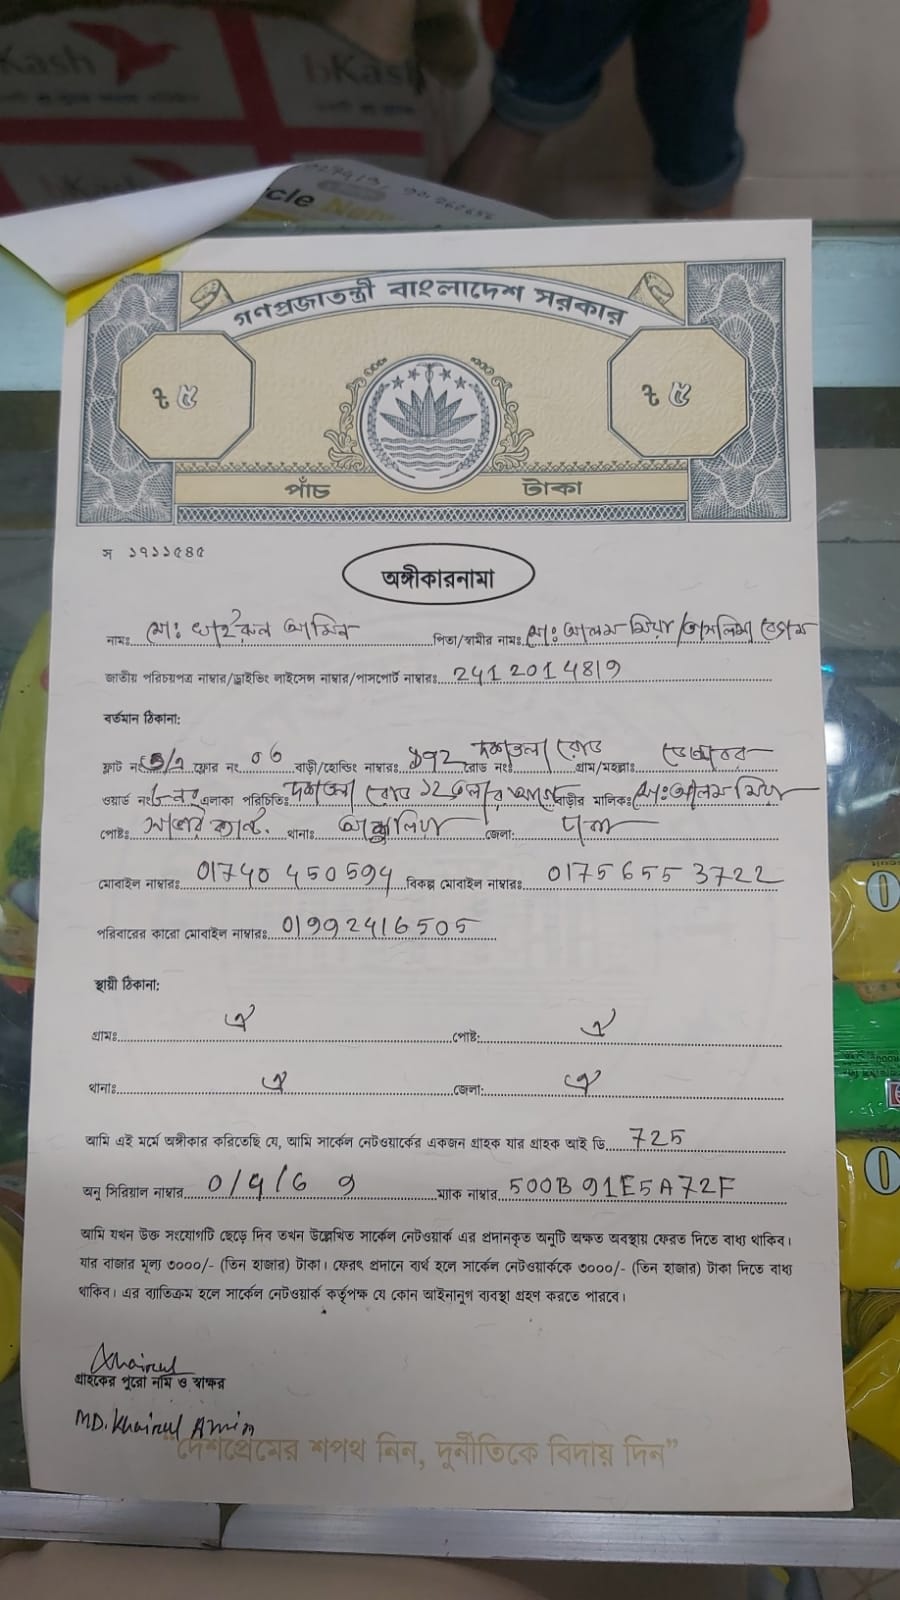 bKash
cle
গণপ্রজাতন্ত্রী বাংলাদেশ সরকার
৳ ৫ ৳ ৫
পাঁচ টাকা
স ১৭১১৫৪৫
অঙ্গীকারনামা
নামঃ মো: খাইরুল আমিন পিতা/স্বামীর নামঃ মো: আলম মিয়া/তাসলিমা বেগম
জাতীয় পরিচয়পত্র নাম্বার/ড্রাইভিং লাইসেন্স নাম্বার/পাসপোর্ট নাম্বারঃ 2412014819
বর্তমান ঠিকানা:
ফ্লাট নং ফ্লোর নং 06 বাড়ী/হোল্ডিং নাম্বারঃ রোড নং দশতলা রোড গ্রাম/মহল্লাঃ
ওয়ার্ড নং এলাকা পরিচিতিঃ রোড ১২ তলার আগে বাড়ীর মালিকঃ মো: আলম মিয়া
পোষ্টঃ সাভার ক্যান্ট. থানাঃ আশুলিয়া জেলা: ঢাকা
মোবাইল নাম্বারঃ 01740 450594 বিকল্প মোবাইল নাম্বারঃ 0175655 3722
পরিবারের কারো মোবাইল নাম্বারঃ 01992416505
স্থায়ী ঠিকানা:
গ্রামঃ ঐ পোষ্ট: ঐ
থানাঃ ঐ জেলা: ঐ
আমি এই মর্মে অঙ্গীকার করিতেছি যে, আমি সার্কেল নেটওয়ার্কের একজন গ্রাহক যার গ্রাহক আই ডি 725
অনু সিরিয়াল নাম্বার ম্যাক নাম্বার 500B91E5A72F
আমি যখন উক্ত সংযোগটি ছেড়ে দিব তখন উল্লেখিত সার্কেল নেটওয়ার্ক এর প্রদানকৃত অনুটি অক্ষত অবস্থায় ফেরত দিতে বাধ্য থাকিব।
যার বাজার মূল্য ৩০০০/- (তিন হাজার) টাকা। ফেরৎ প্রদানে ব্যর্থ হলে সার্কেল নেটওয়ার্ককে ৩০০০/- (তিন হাজার) টাকা দিতে বাধ্য
থাকিব। এর ব্যতিক্রম হলে সার্কেল নেটওয়ার্ক কর্তৃপক্ষ যে কোন আইনানুগ ব্যবস্থা গ্রহণ করতে পারবে।
Khairul
গ্রাহকের পুরো নাম ও স্বাক্ষর
MD. Khairul Amin
"দেশপ্রেমের শপথ নিন, দুর্নীতিকে বিদায় দিন"